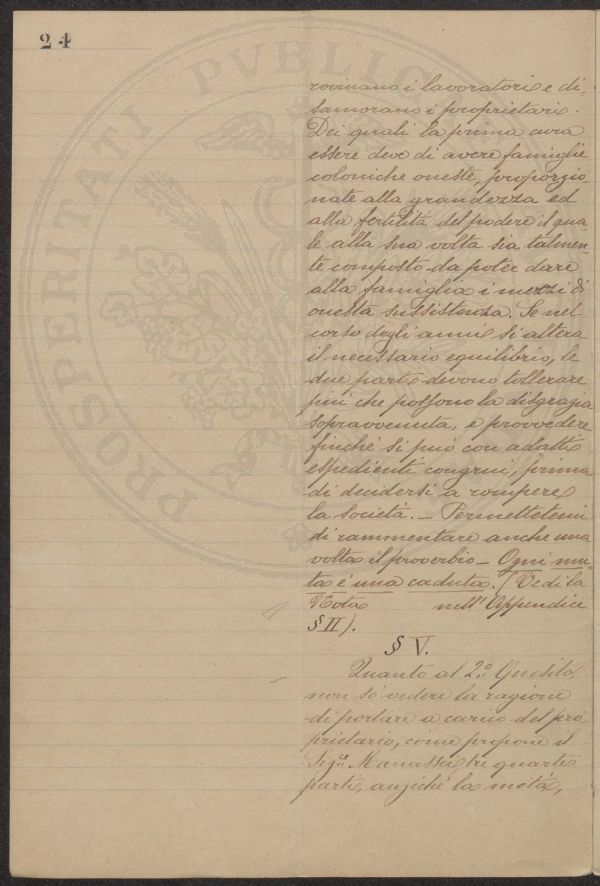 24
rovinano i lavoratori e di-
samorano i proprietari.
Dei quali la prima cura
essere deve di avere famiglie
coloniche oneste, proporzio-
nate alla grandezza ed
alla fertilità del podere il qua-
le alla sua volta sia talmen-
te composto da poter dare
alla famiglia i mezzi di
onesta sussistenza. Se nel
corso degli anni si altera
il necessario equilibrio, le
due parti devono tollerare
fin che possono la disgrazia
sopravvenuta, e provvedere
finché si può con adatti
espedienti congrui, prima
di decidersi a rompere
la Società. — Permettetemi
di rammentare anche una
volta il proverbio — Ogni mu-
ta è una caduta. (Vedi la
Nota nell'Appendice
§ II).
§ V.
Quanto al 2.o Quesito,
non so vedere la ragione
di portare a carico del pro
prietario, come propone il
Sig.r Manassei tre quarte
parti, anziché la metà,
PROSPERITATI PVBLIC